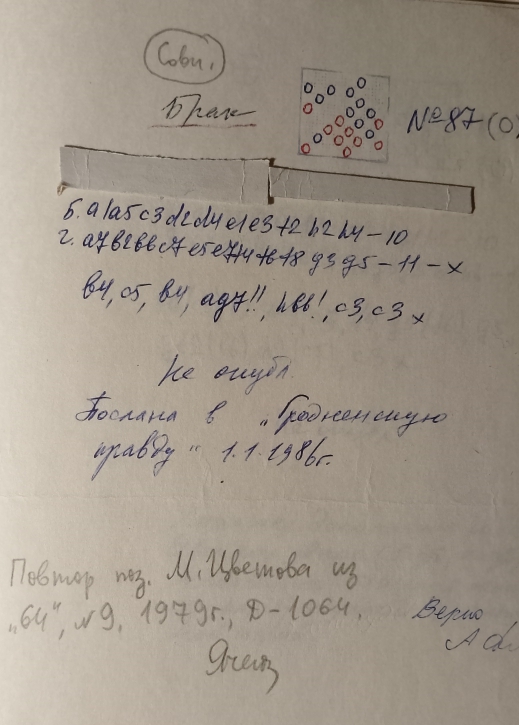 Совп.
Брак
№ 87 (0)
б. a1 a5 c3 d2 d4 e1 e3 f2 h2 h4 – 10
ч. a7 b2 b6 c7 e5 e7 f4 f6 f8 g3 g5 – 11 – x
b4, c5, b4, ag7!!, hb6!, c3, c3 x
Не опубл.
Послана в „Гродненскую
правду" 1.1.1986г.
Повтор поз. М. Цветова из
„64", №9, 1979г., Д-1064.
Верно